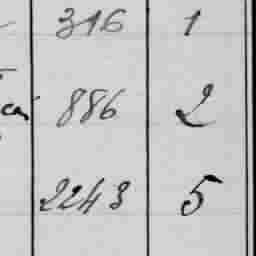 316 1
886 2
2243 5